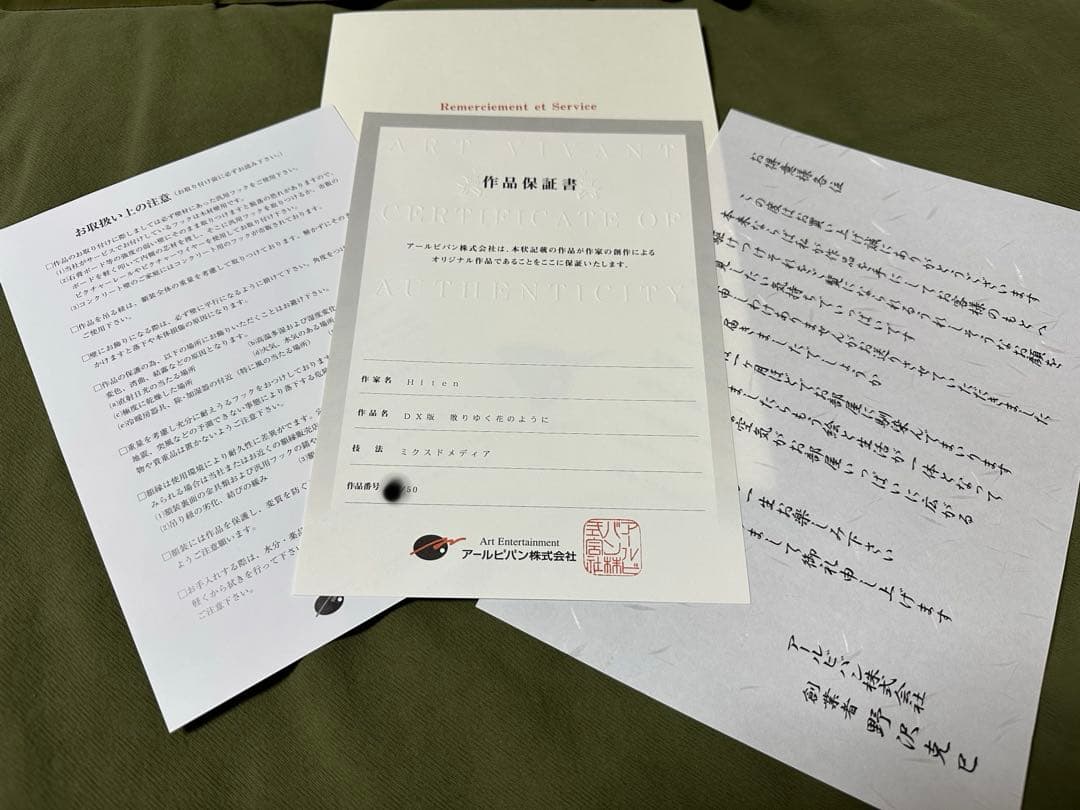 Remerciement et Service
ART VIVANT
作品保証書
CERTIFICATE OF
アールビバン株式会社は、本状記載の作品が作家の創作による
オリジナル作品であることをここに保証いたします.
AUTHENTICITY
作家名 Hiten
作品名 DX版 散りゆく花のように
技 法 ミクスドメディア
作品番号 /50
Art Entertainment
アールビバン株式会社
アールビバン株式会社
お取扱い上の注意(お取り付け前に必ずお読み下さい。)
□作品のお取り付けに際しましては必ず壁材にあった汎用フックをご使用下さい。
(1)当社がサービスでお付けしているフックは木材使用です。
(2)石膏ボード等の強度の弱い壁にそのまま取りつけますと脱落の恐れがありますので、
ボードを軽く叩いて内側の芯材を捜し、そこに汎用フックを取りつけるか、市販の
ピクチャーレールやピクチャーワイヤーを使用してお取り付け下さい。
(3)コンクリート壁のご家庭にはコンクリート用のフックが市販されております。
□作品を吊る紐は、額装全体の重量を考慮して取りつけております。解かずにそのま
ご使用下さい。
□壁にお飾りになる際は、必ず壁に平行になるように掛けて下さい。角度をつけ
かけますと落下や本体損傷の原因になります。
□作品の保護の為、以下の場所にお飾りいただくことはお避け下さい。
変色、湾曲、結露などの原因となります。
(a)直射日光の当たる場所
(b)高温多湿および湿度変化
(c)極度に乾燥した場所
(d)火気、水気のある場所
(e)冷暖房器具、除・加湿器の付近(特に風の当たる場所)
□重量を考慮し充分に耐えうるフックをおつけしております
地震、突風などの予測できない事態により落下する危険
物や貴重品は置かないようご注意下さい。
□額縁は使用環境により耐久性に差異がでます。
みられる場合は当社またはお近くの額縁販売店
(1)額装裏面の金具類および汎用フックの錆や
(2)吊り紐の劣化、結びの緩み
□額装には作品を保護し、変質を防ぐ
ようご注意願います。
□お手入れする際は、水分・薬品
軽くから拭きを行って下さい
ご注意下さい。
お得意様各位
の度はお買い上げ誠にありがとうございます
本来ならば私が作品を手にしてお客様のもとへ
駆けつけそれをお壁になられるうれしそうなお顔を
見したい気持ちでいっぱいです
申しわけありませんがお送りさせていただきました
届きましたでしょうか
は一ヶ月ほどでお部屋に馴染んでまいります
ましたらもう絵と生活が一体となって
空気がお部屋いっぱいに広がる
一生お楽しみ下さい
まして御礼申し上げます
アールビバン株式会社
創業者 野沢克巳